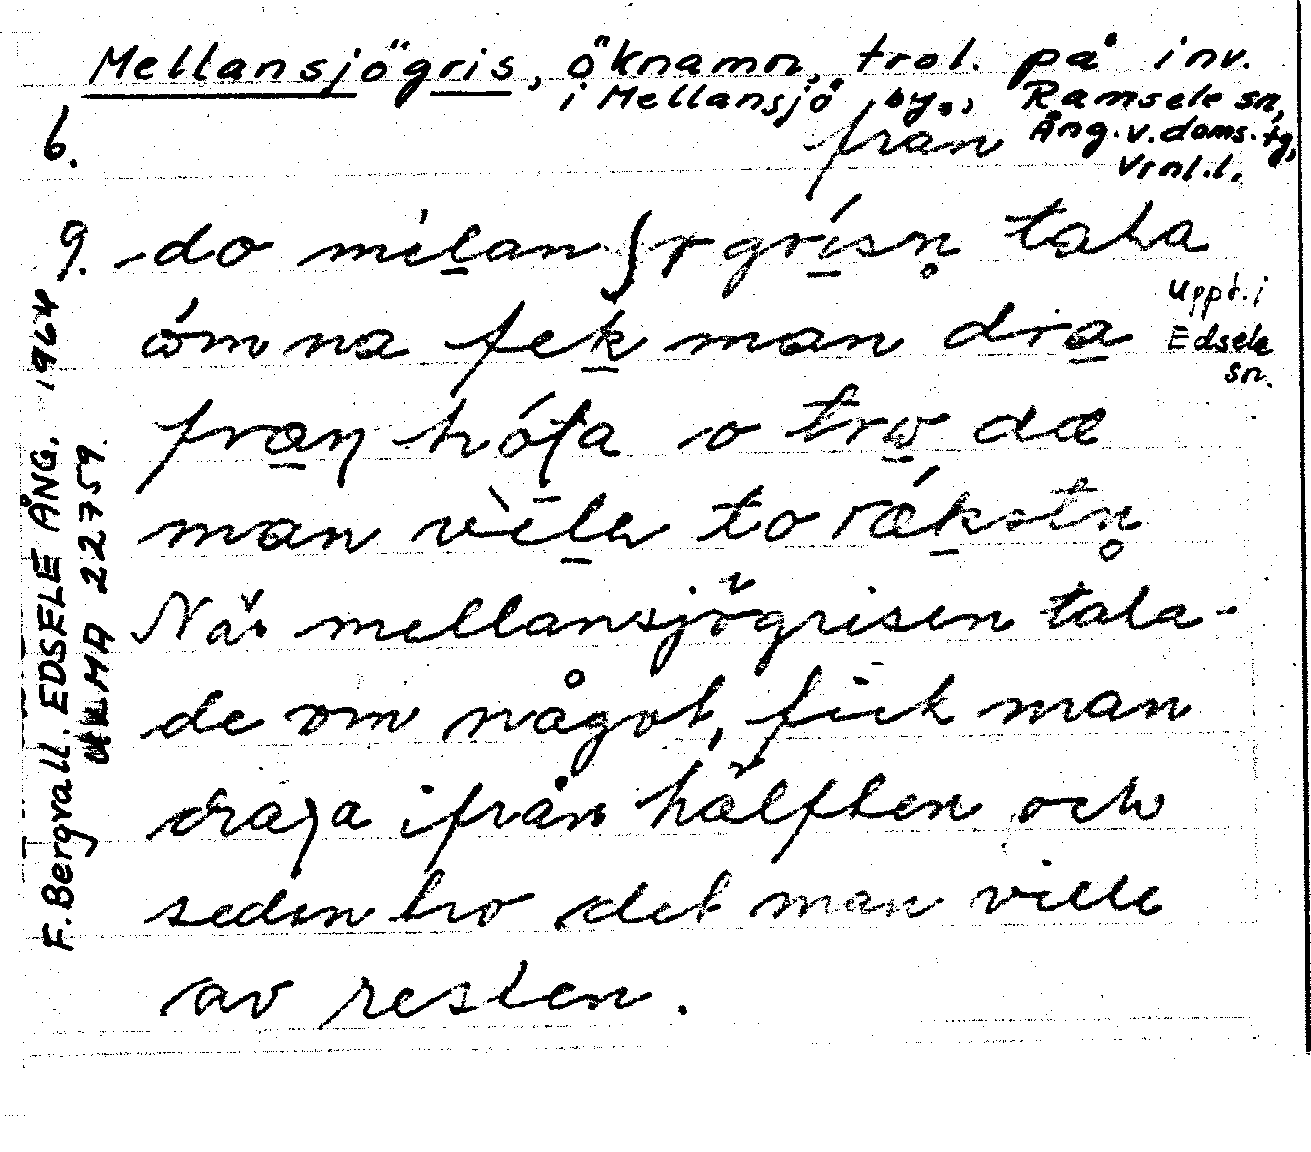 Mellansjögris, öknamn, trol. på inv.
i Mellansjö by., Ramsele sn,
från Ång. v. doms. tg,
Vrnl.l.
6.
9. do melan ʃr grisn tala
Uppt. i
Edsele
sn.
ómna fek man dra
fræn hófa o tro dæ
man vèla to rækstn
När mellansjögrisen tala-
de om något, fick man
draga ifrån hälften och
sedan tro det man ville
av resten.
F. Bergvall. EDSELE ÅNG. 1964
ULMA 22759.